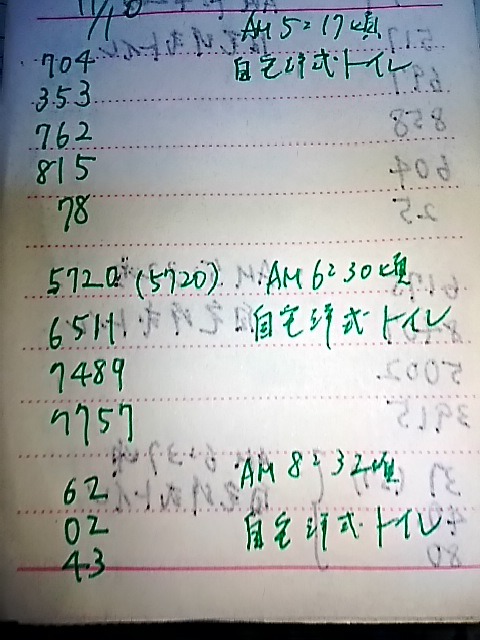 11/10
AM 5:17頃
704 自宅洋式トイレ
353
762
815
78
5720 (5720) AM 6:30頃
6511 自宅洋式トイレ
7489
7757
AM 8:32頃
62
02 自宅洋式トイレ
43